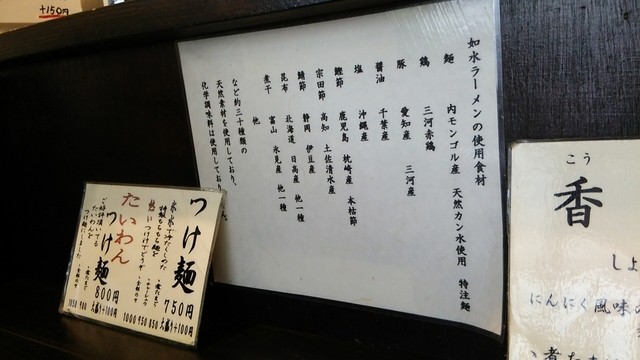 +150円
如水ラーメンの使用食材
麺 内モンゴル産 天然カン水使用 特注麺
鶏 三河赤鶏
豚 愛知産 三河産
醤油 千葉産
塩 沖縄産
鰹節 鹿児島 枕崎産 本枯節
宗田節 高知 土佐清水産
鯖節 静岡 伊豆産
昆布 北海道 日高産 他一種
煮干 富山 氷見産 他一種
他
など約三十種類の
天然素材を使用しており、
化学調味料は使用しており
つけ麺
750円
850
950
1000
大盛り+100円
たいわん
つけ麺
800円
大盛り+100円
こう
香
しょ
にんにく風味の